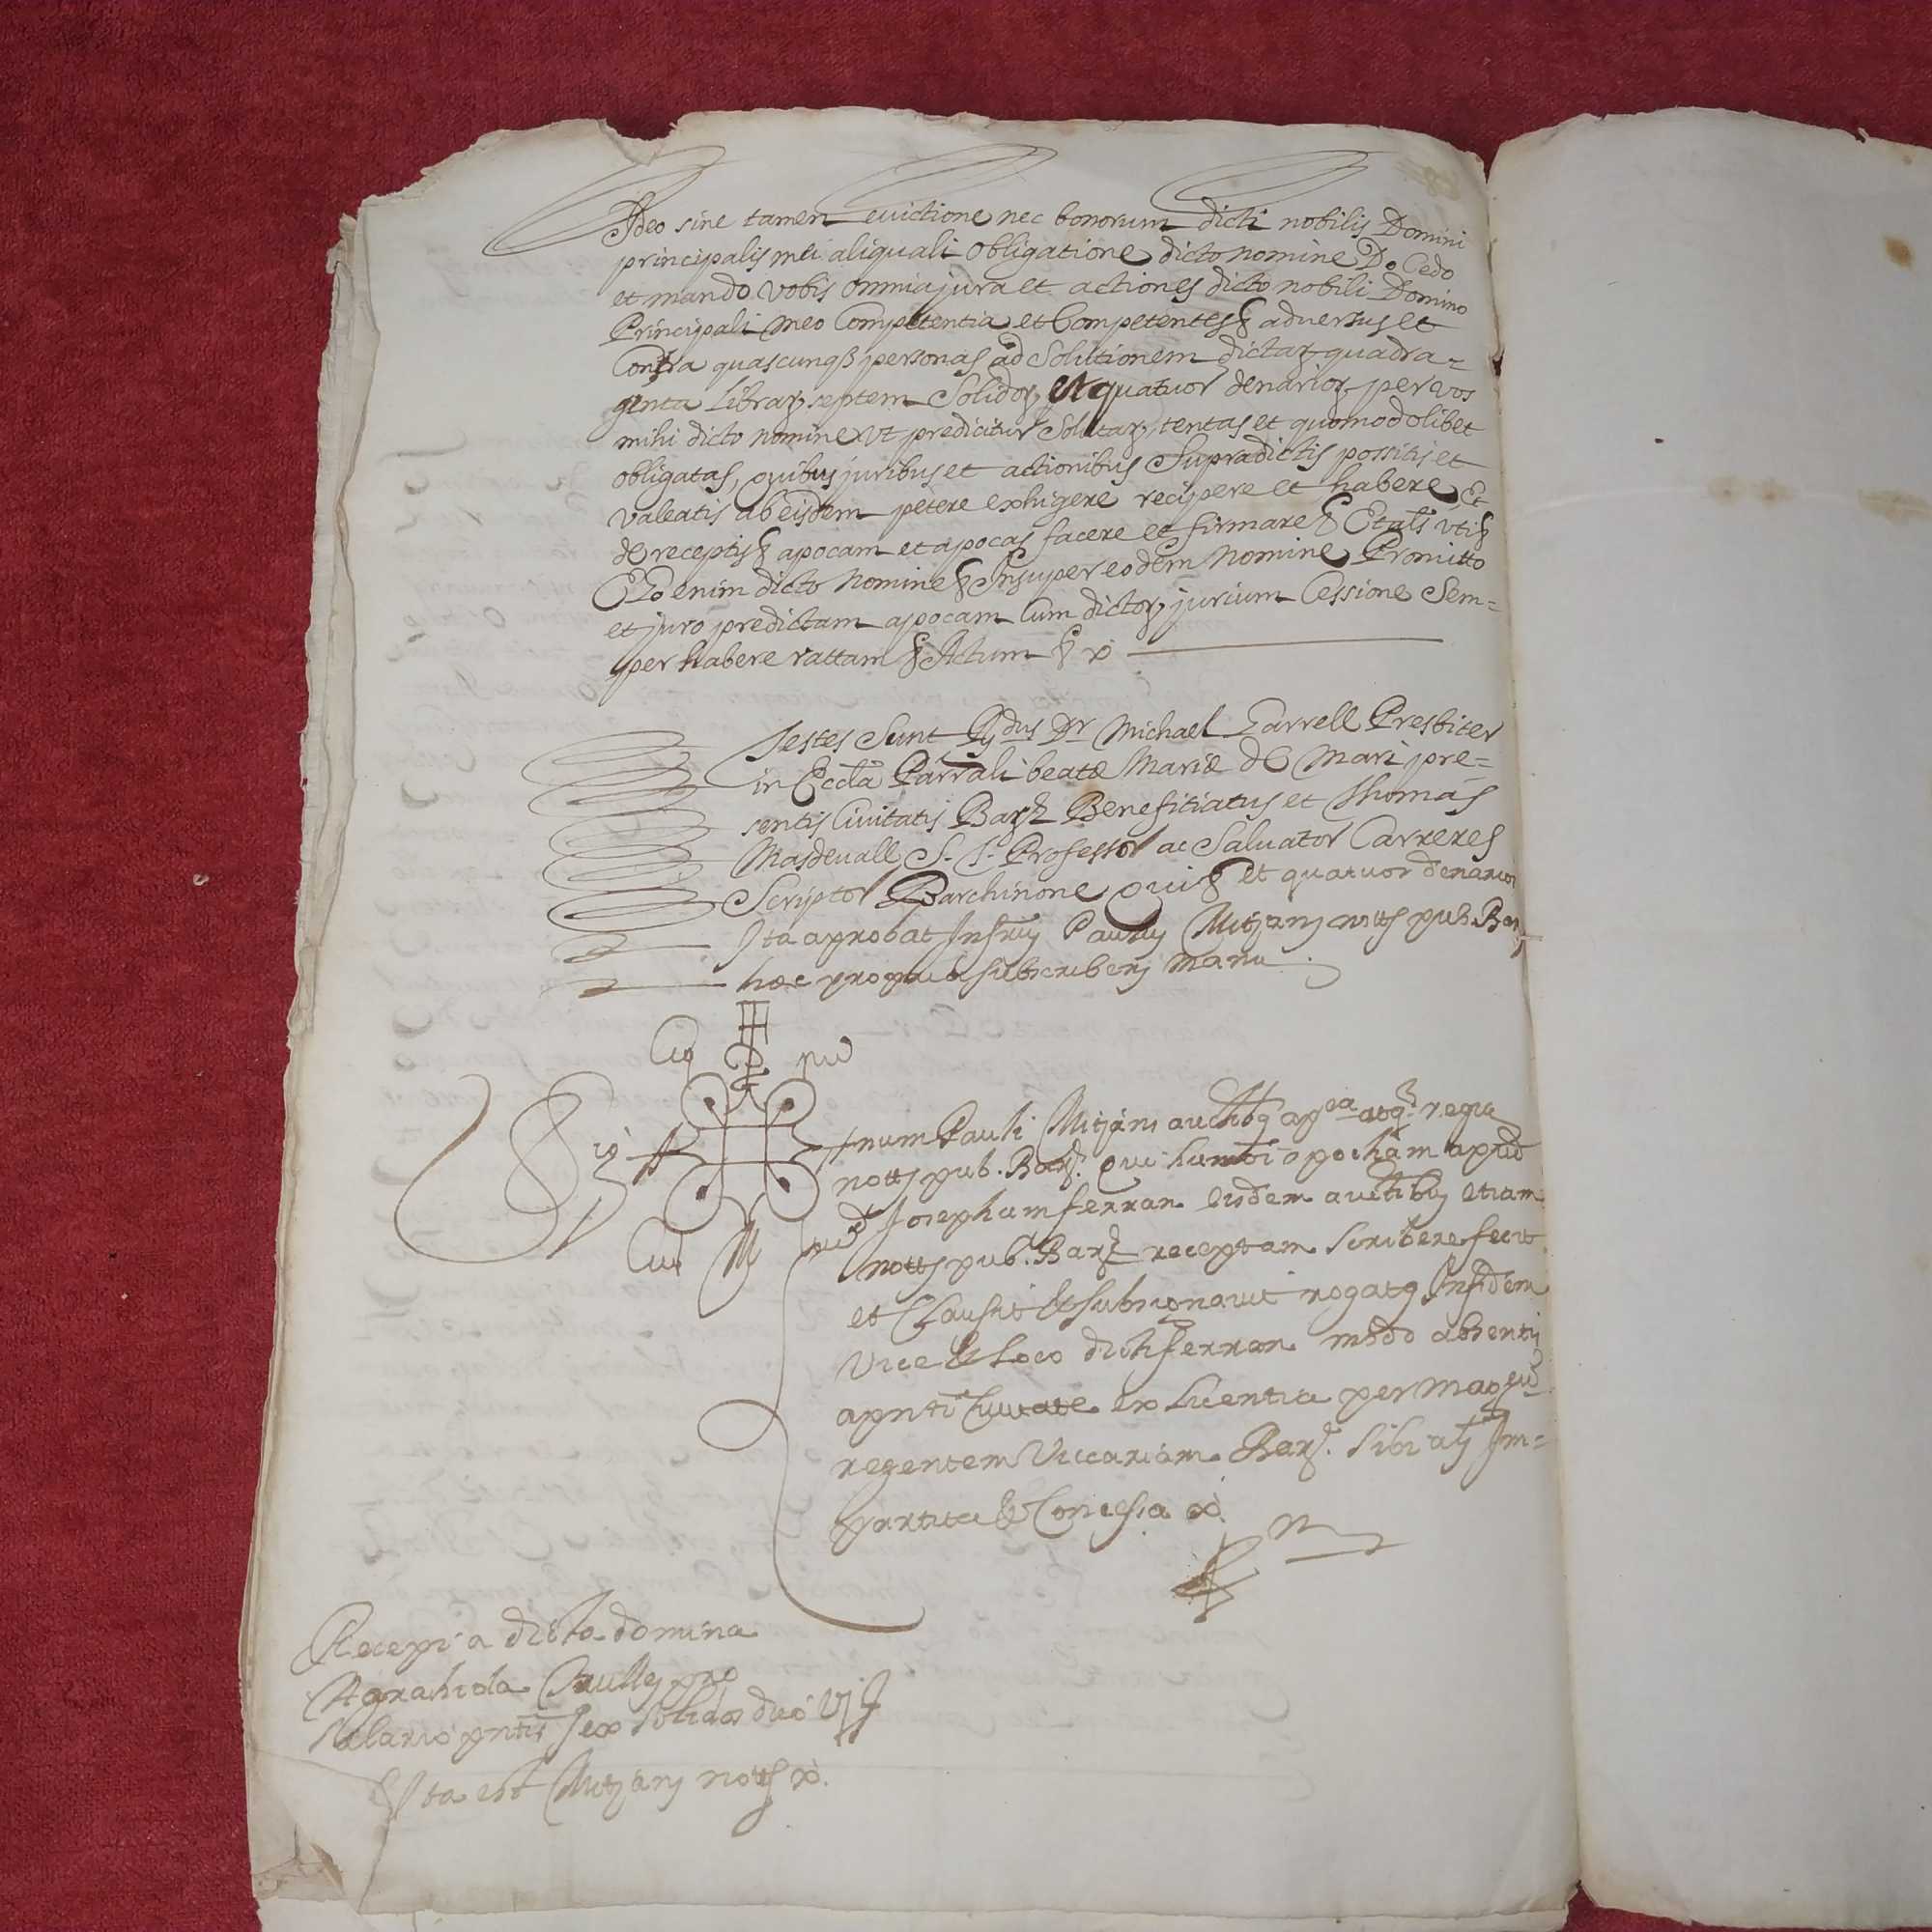 Adeo sine tamen evictione nec bonorum dicti nobilis Domini
principalis mei aliquali obligatione dicto nomine Do Cedo
et mando vobis omnia jura et actiones dicto nobili Domino
Principali meo Competentia et Competentes & adversus et
Contra quascunqß personas ad Solutionem dictar quadra=
ginta Librar septem Solidor et quatuor denarior per vos
mihi dicto nomine ut predicitur Solutar, tentas et quomodolibet
obligatas, quibus juribus et actionibus Supradictis possitis et
valeatis ab eisdem petere exhigere recipere et habere Et
de receptis & apocam et apocas facere et firmare & Et alr utis
Ego enim dicto Nomine & Insuper eodem Nomine Promitto
et juro predictam apocam Cum dictor jurium Cessione Sem=
per habere rattam & Actum &
Testes Sunt Rdus Dr Michael Garrell Presbiter
in Eccla Parrali beatæ Mariæ de Mari pre=
sentis Civitatis Barz Benefitiatus et Thomas
Masdevall S. T. Professor ac Salvator Carreres
Scriptor Barchinone Qui & et quatuor denarior
Ita aprobat Infrus Paulus Mitjans notts pub. Bar
hæc propria subscribens manu.
Sig num Pauli Mitjans auctibq apca atq regia
notts pub. Barz. qui huiusmoi apocham apud
d Josephum ferran eisdem auctibus etiam
notts pub. Barz receptam scribere fecit
et Clausit & subsignavit rogatq In fidem
Vice & Loco dicti ferran modo absentis
apnti Civitate ex Licentia per Magcu
regentem Viccariam Barz. sibi Im=
partita & Concessa
Recepi a dicta domina
Agrahida Crulles pro
salario pntis sex solidos dico Vj s
Ita est Mitjans notts